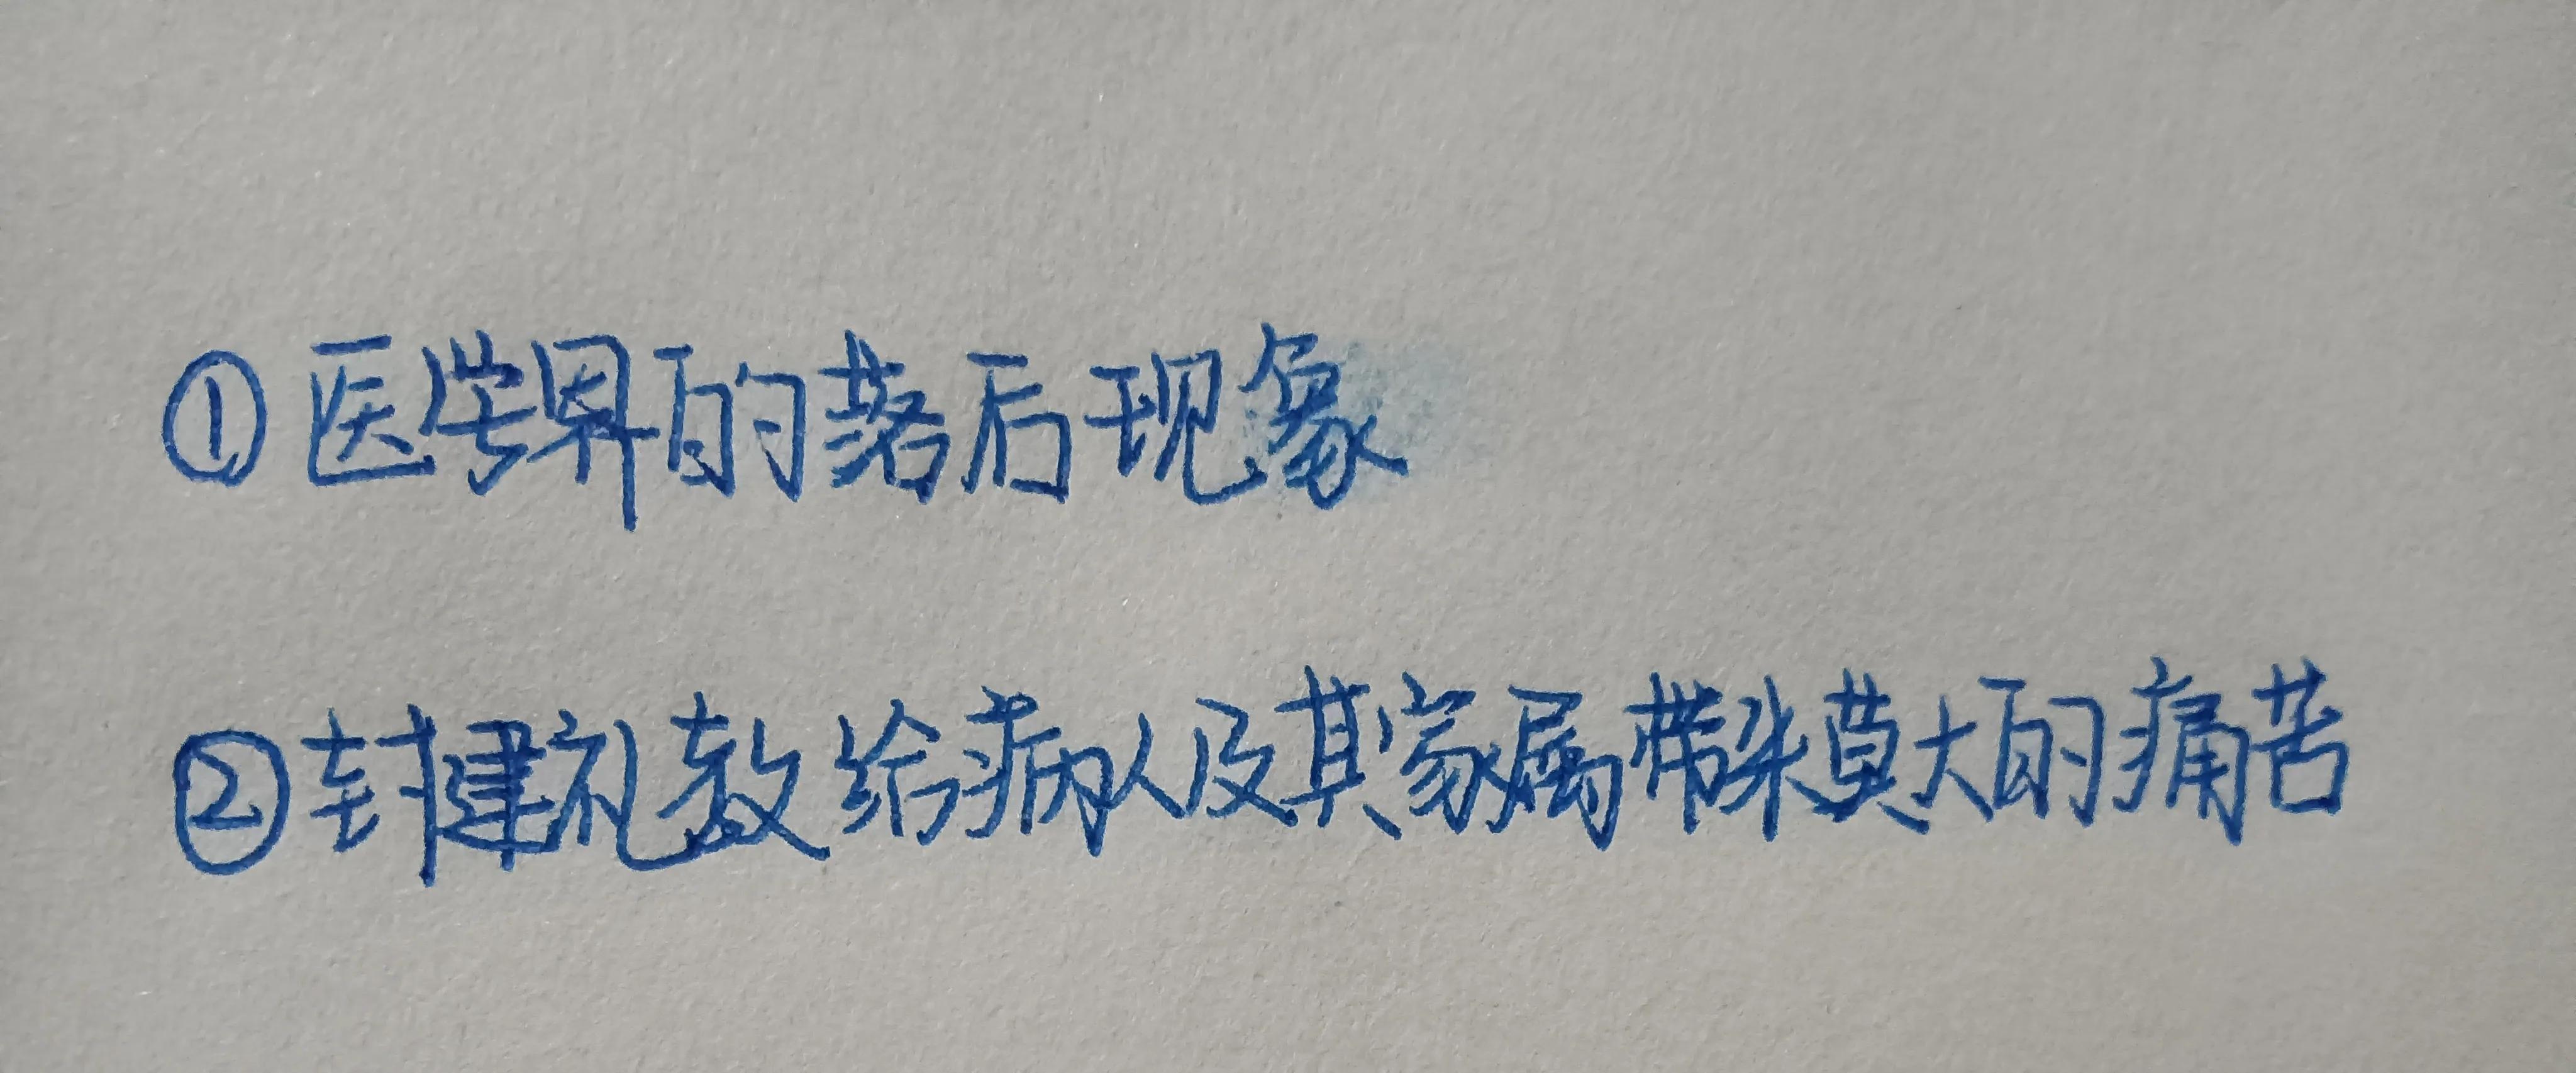 ①医学界的落后现象
②封建礼教给病人及其家属带来莫大的痛苦